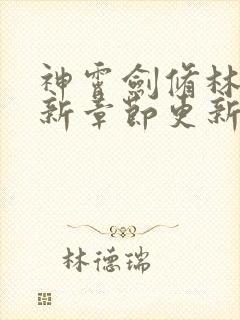 神霄劍脩林
新章節更新
林德瑞